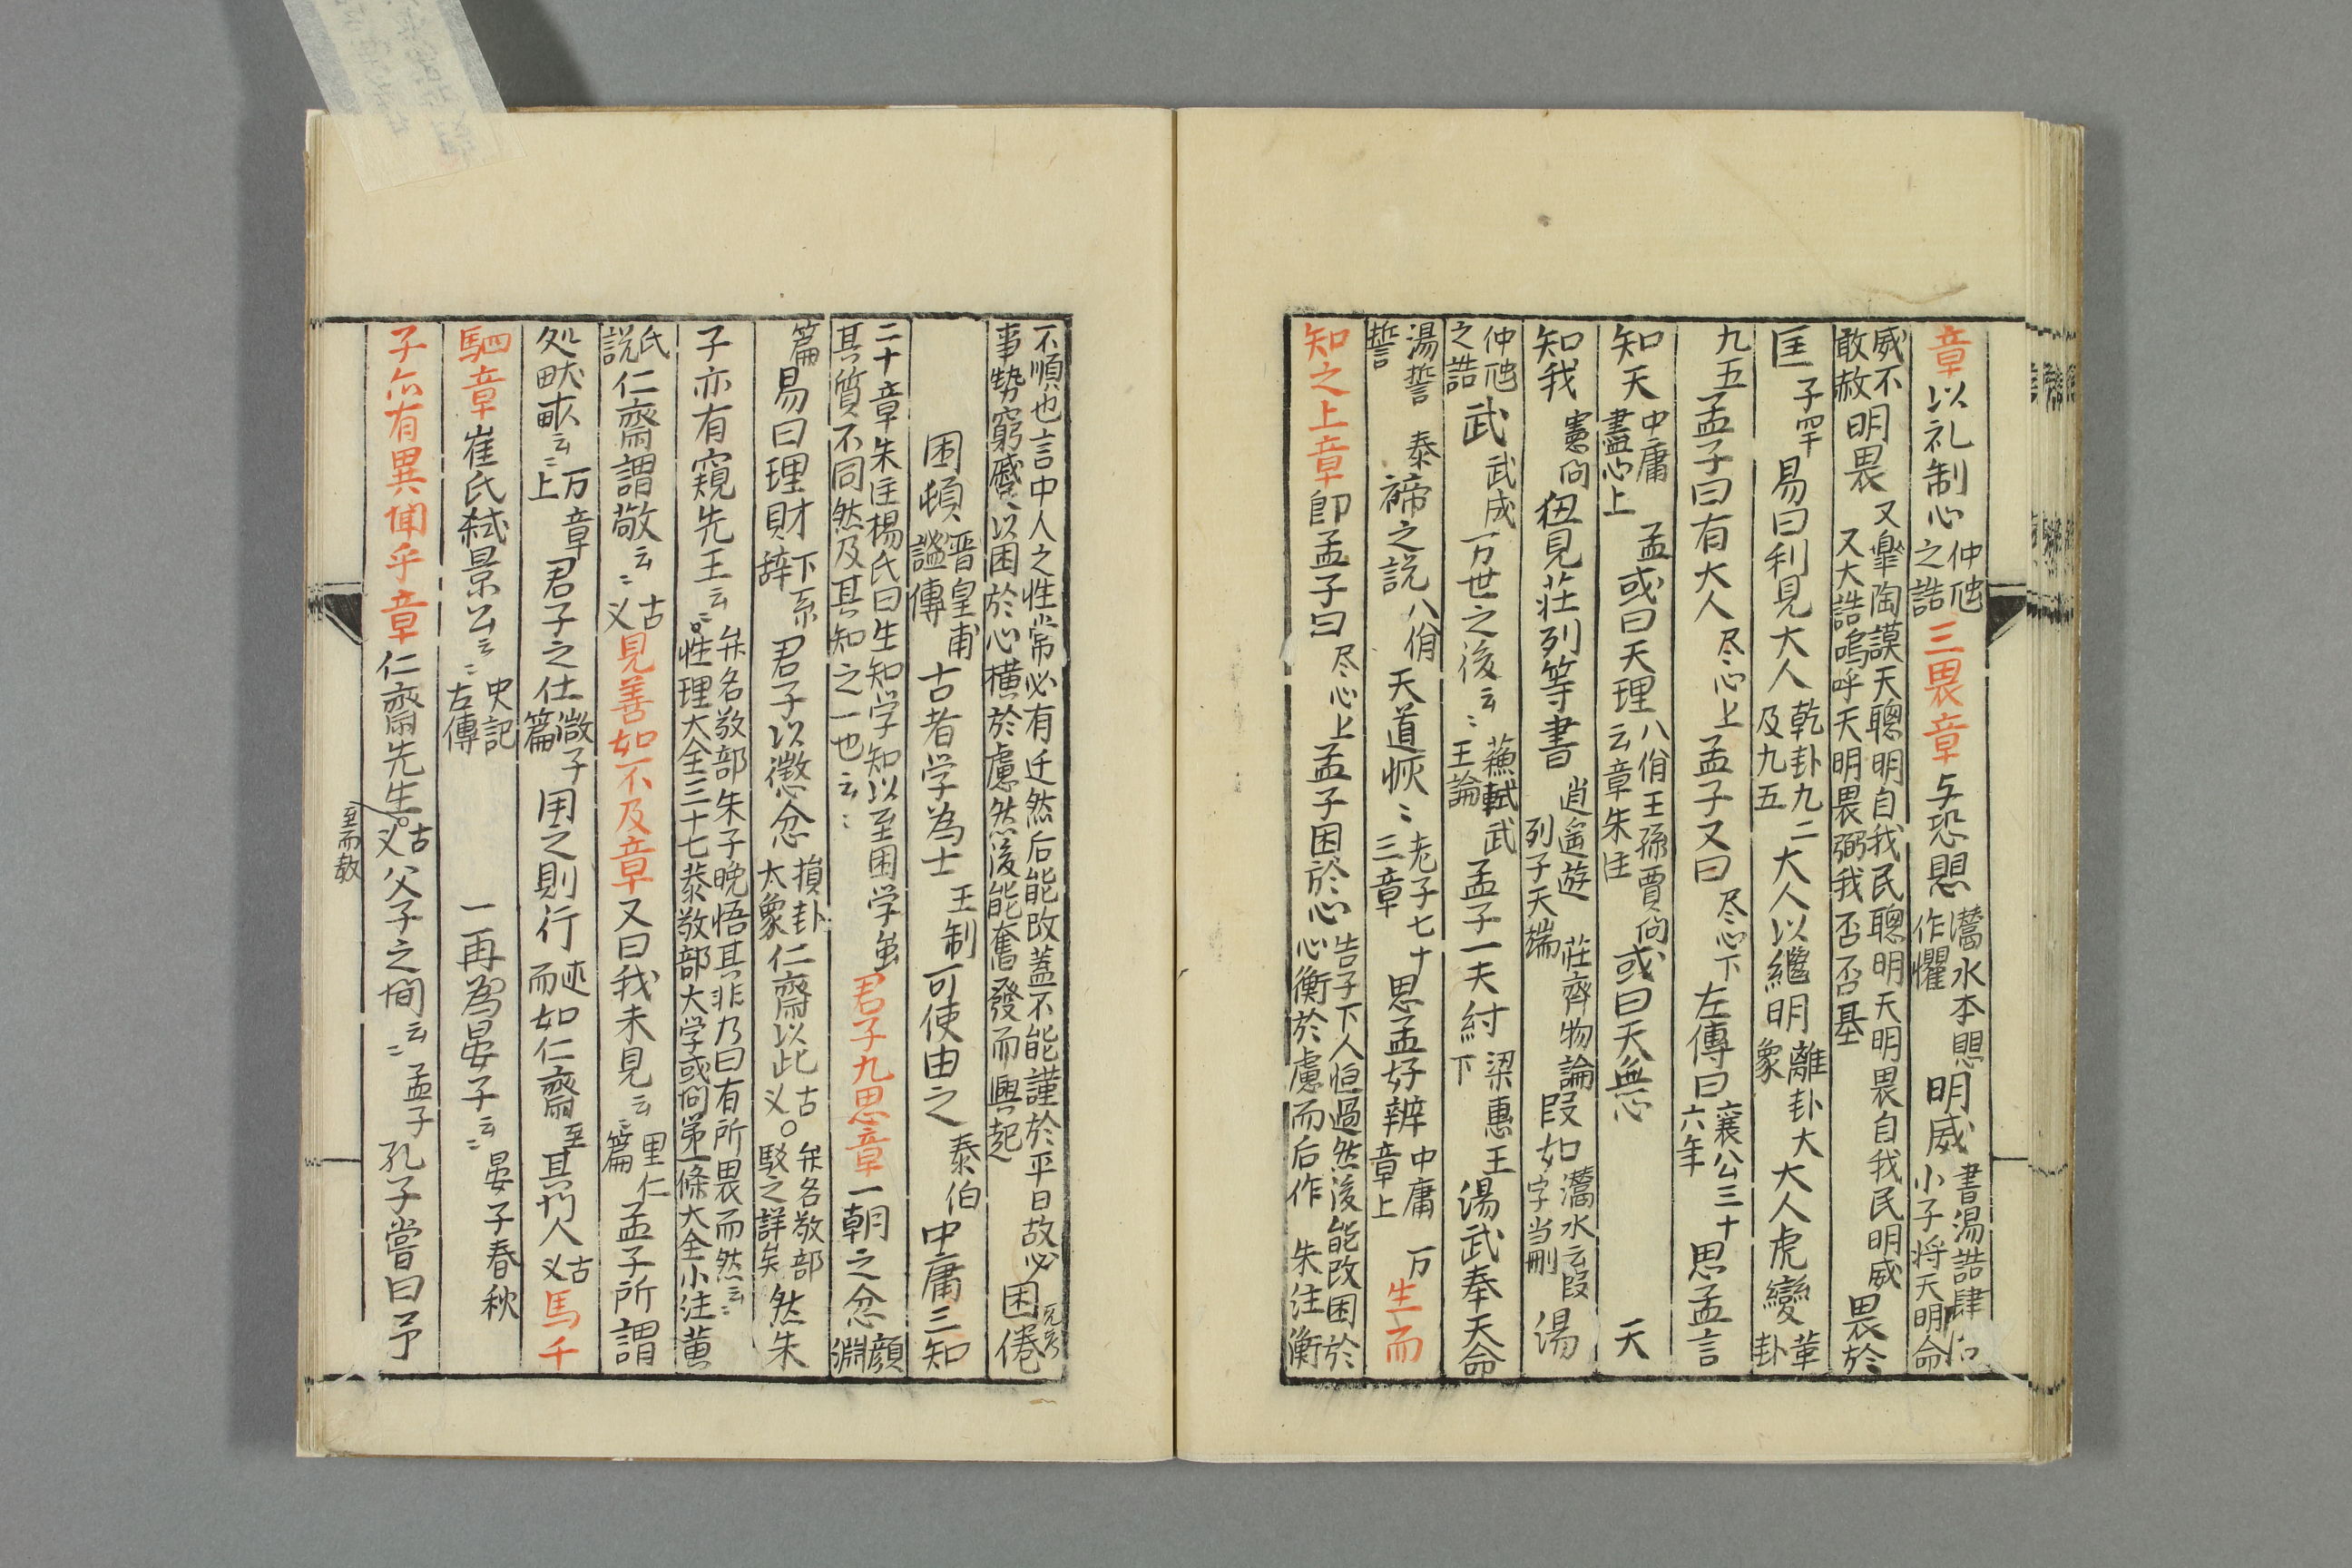 章以礼制心仲虺之誥三畏章与恐愳灊水本愳作懼明威書湯誥肆小子将天明命
威不敢赦明畏又皐陶謨天聰明自我民聰明天明畏自我民明威又大誥嗚呼天明畏弼我丕丕基畏於
匡子罕易曰利見大人乾卦九二及九五大人以繼明離卦大象大人虎變革卦
九五孟子曰有大人尽心上孟子又曰尽心下左傳曰襄公三十六年思孟言
知天中庸盡心上孟或曰天理八佾王孫賈問云章朱注或曰天無心天
知我憲問伹見荘列等書逍遙遊列子天瑞荘齊物論段如灊水云段字当刪湯
仲虺之誥武武成万世之後云〻蘓軾武王論孟子一夫紂梁惠王下湯武奉天命
湯誓泰誓禘之説八佾天道恢〻老子七十三章思孟好辨中庸章上万生而
知之上章即孟子曰尽心上孟子困於心告子下人恒過然後能改困於心衡於慮而后作朱注衡
不順也言中人之性常必有迁然后能改蓋不能謹於平日故必事勢窮蹙以困於心横於慮然後能奮發而興起困倦
困頓晋皇甫謐傳古者学為士王制可使由之泰伯中庸三知
二十章朱注楊氏曰生知学知以至困学虽其質不同然及其知之一也云〻君子九思章一朝之忿顔淵
篇易曰理財下系辞君子以懲忿損卦大象仁齋以此古义弁名敬部駁之詳矣然朱
子亦有窺先王云〻弁名敬部朱子晩悟其非乃曰有所畏而然云〻性理大全三十七恭敬部大学或問第一條大全小注黄
氏説仁齋謂敬云〻古义見善如不及章又曰我未見云〻里仁篇孟子所謂
処畎畝云〻万章上君子之仕微子篇用之則行述而如仁齋至其門人古义馬千
駟章崔氏弑景公云〻史記左傳一再為晏子云〻晏子春秋
子亦有異聞乎章仁齋先生古义父子之間云〻孟子孔子嘗曰予
至而敎